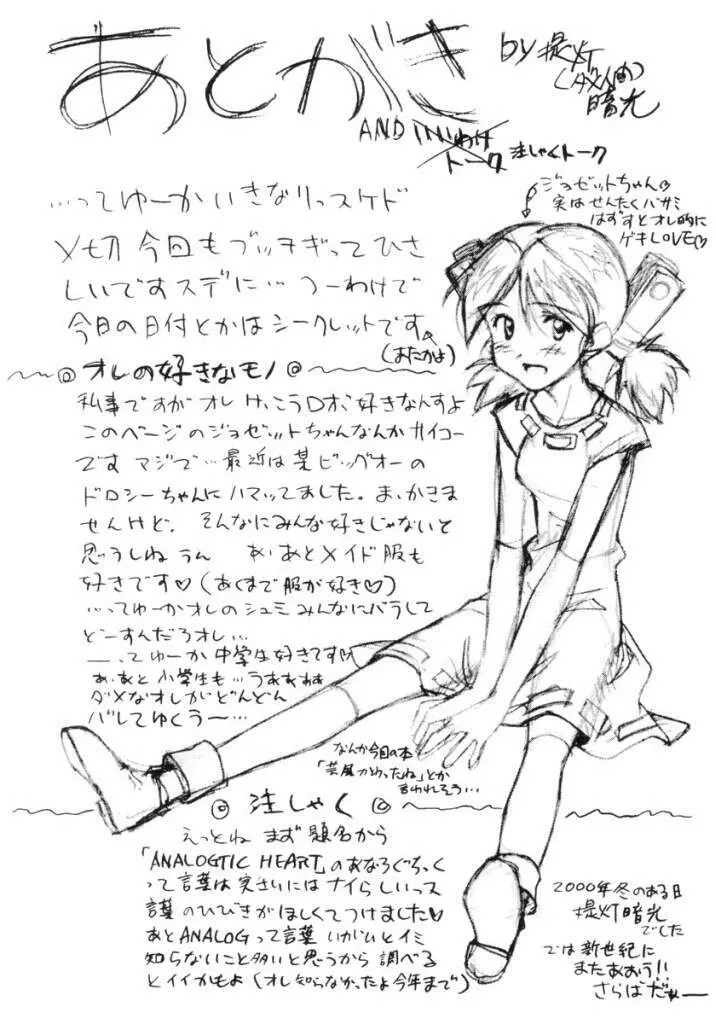 あとがき
by 提灯
(ダメ人間)
暗光
AND いいわけ
トーク 注しゃくトーク
ジョゼットちゃん♡
実はせんたくバサミ
はずすとオレ的に
ゲキLOVE♡
…ってゆーか いきなりっスケド
〆切 今回も ブッチギって ひさ
しいです スデに… つーわけで
今日の日付とかはシークレットです。
(またかよ)
◎オレの好きなモノ◎
私事ですが オレ けっこうロボ好きなんすよ
このページのジョゼットちゃんなんか サイコー
です マジで… 最近は某ビッグオーの
ドロシーちゃんに ハマッてました。ま、かきま
せんけど。 そんなにみんな好きじゃないと
思うしね うん あ、あとメイド服も
好きです♡(あくまで服が好き♡)
…ってゆーかオレのシュミみんなにバラして
どーすんだろオレ…
―…ってゆーか 中学生好きです♡
あ、あと 小学生も…うあああ
ダメなオレがどんどん
バレてゆくぅ~…
なんか今回の本
「芸風かわったね」とか
言われそう…
◎ 注しゃく ◎
えっとね まず 題名から
「ANALOGTIC HEART」のあなろぐちっく
って言葉は実さいにはナイらしいっス
言葉のひびきがほしくてつけました♡
あとANALOGって言葉 いがいとイミ
知らないこと多いと思うから 調べる
とイイかもよ(オレ知らなかったよ今年まで)
2000年冬のある日
提灯暗光
でした
では新世紀に
またあおう!!
さらばだぁー